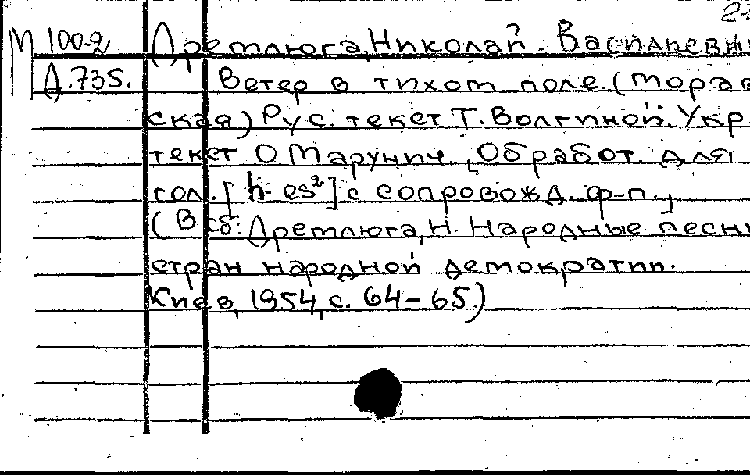 М 100-2 Дремлюга, Николай Васильеви
Д.735. Ветер в тихом поле. (Морав
ская) Рус. текст Т. Волгиной. Укр.
текст О Марунич. Обработ. для
гол. [h-es²] с сопровожд. ф-п.,
(В сб: Дремлюга, Н. Народные песни
стран народной демократии.
Киев, 1954, с. 64-65.)